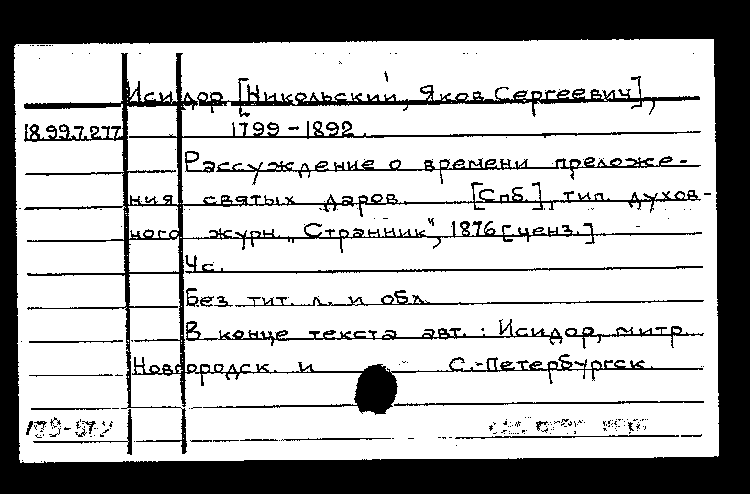 Исидор [Никольский, Яков Сергеевич],
18.99.7.277 1799-1892.
Рассуждение о времени преложе-
ния святых даров. [Спб.], тип. духов-
ного журн. „Странник", 1876 [ценз.].
4с.
Без тит. л. и обл.
В конце текста авт.: Исидор, митр.
Новгородск. и С.-Петербургск.